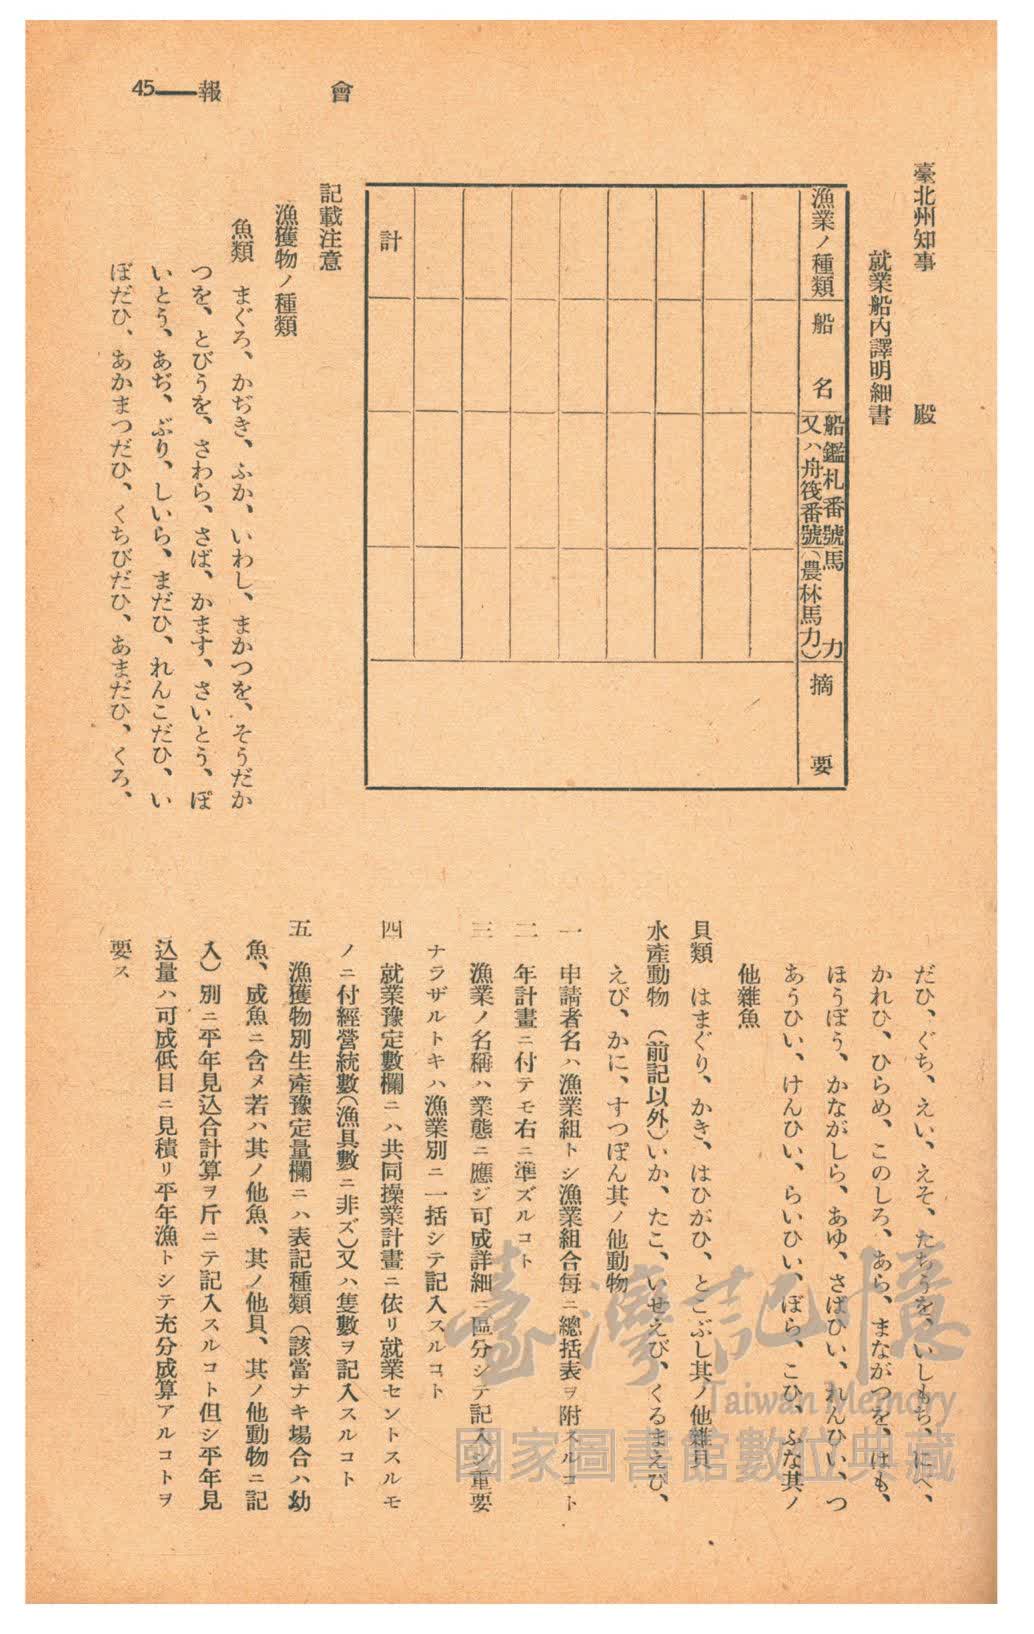 45 報 會
臺北州知事 殿
就業船內譯明細書
漁業ノ種類
船名
船鑑札番號
又ハ舟筏番號
馬力
(農林馬力)
摘要
計
記載注意
漁獲物ノ種類
魚類 まぐろ、かぢき、ふか、いわし、まかつを、そうだか
つを、とびうを、さわら、さば、かます、さいとう、ぽ
いとう、あぢ、ぶり、しいら、まだひ、れんこだひ、い
ぼだひ、あかまつだひ、くちびだひ、あまだひ、くろ、
だひ、ぐち、えい、えそ、たちうを、いしもち、にべ、
かれひ、ひらめ、このしろ、あら、まながつを、はも、
ほうぼう、かながしら、あゆ、さばひい、れんひい、つ
あうひい、けんひい、らいひい、ぼら、こひ、ふな其ノ
他雜魚
貝類 はまぐり、かき、はひがひ、とこぶし其ノ他雜貝
水產動物 (前記以外)いか、たこ、いせえび、くるまえび、
えび、かに、すつぽん其ノ他動物
一 申請者名ハ漁業組トシ漁業組合每ニ總括表ヲ附スルコト
二 年計畫ニ付テモ右ニ準ズルコト
三 漁業ノ名稱ハ業態ニ應ジ可成詳細ニ區分シテ記入シ重要
ナラザルトキハ漁業別ニ一括シテ記入スルコト
四 就業豫定數欄ニハ共同操業計畫ニ依リ就業セントスルモ
ノニ付經營統數(漁具數ニ非ズ)又ハ隻數ヲ記入スルコト
五 漁獲物別生產豫定量欄ニハ表記種類(該當ナキ場合ハ幼
魚、成魚ニ含メ若ハ其ノ他魚、其ノ他貝、其ノ他動物ニ記
入)別ニ平年見込合計算ヲ斤ニテ記入スルコト但シ平年見
込量ハ可成低目ニ見積リ平年漁トシテ充分成算アルコトヲ
要ス
臺灣記憶
Taiwan Memory
國家圖書館數位典藏